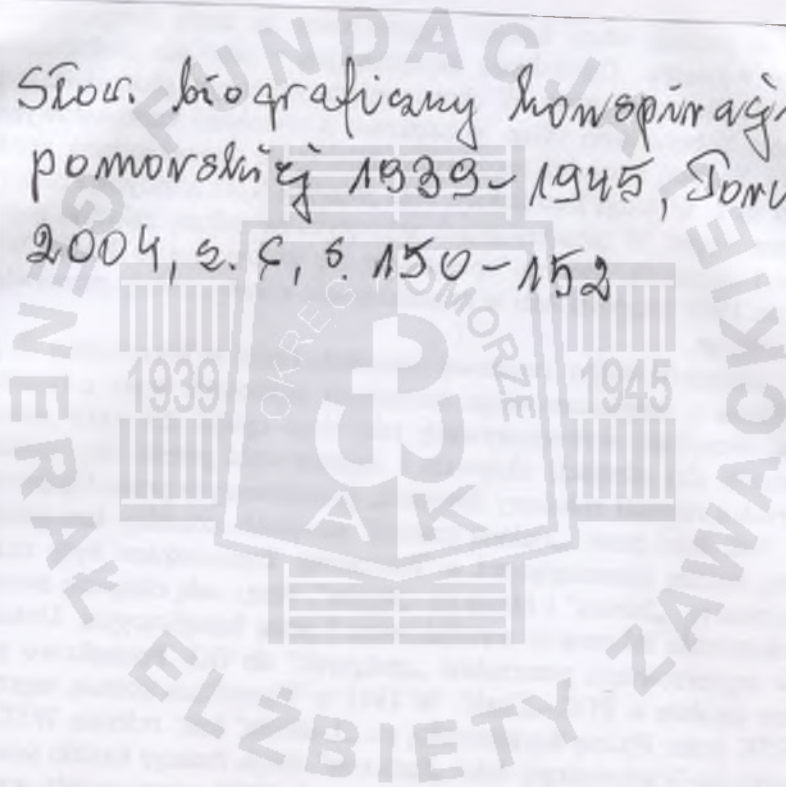 Słow. biograficzny konspiracji
pomorskiej 1939-1945, Toru
2004, s. 150-152
FUNDACJA GENERAŁ ELŻBIETY ZAWACKIEJ
OKRĘG POMORZE
1939 1945
AK